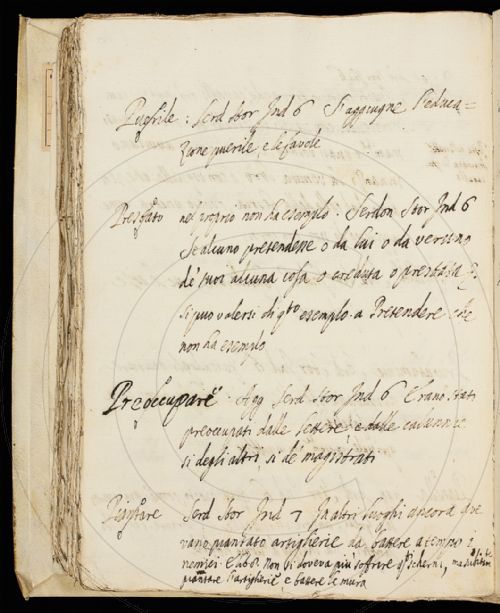 Puerile : Serd Stor Ind 6 S'aggiugne l'educa=
zione puerile, e le favole
nel proprio non ha esempio. Serdon Stor Ind 6
Se alcuno pretendesse o da lui o da veruno
de' suoi alcuna cosa o creduta o prestata
si può valersi di qto esempio a Pretendere che
non ha esempio
Preoccupare. Agg Serd Stor Ind 6 Erano stati
preoccupati dalle lettere, e dalle calunnie
si degli altri, si de' magistrati
Piantare Serd Stor Ind 7 In altri luoghi ancora
vano piantato artiglierie da battere a tempo i
nemici non si doveva più soffrire scherni, ma
piantare l'artiglierie, e battere le mura